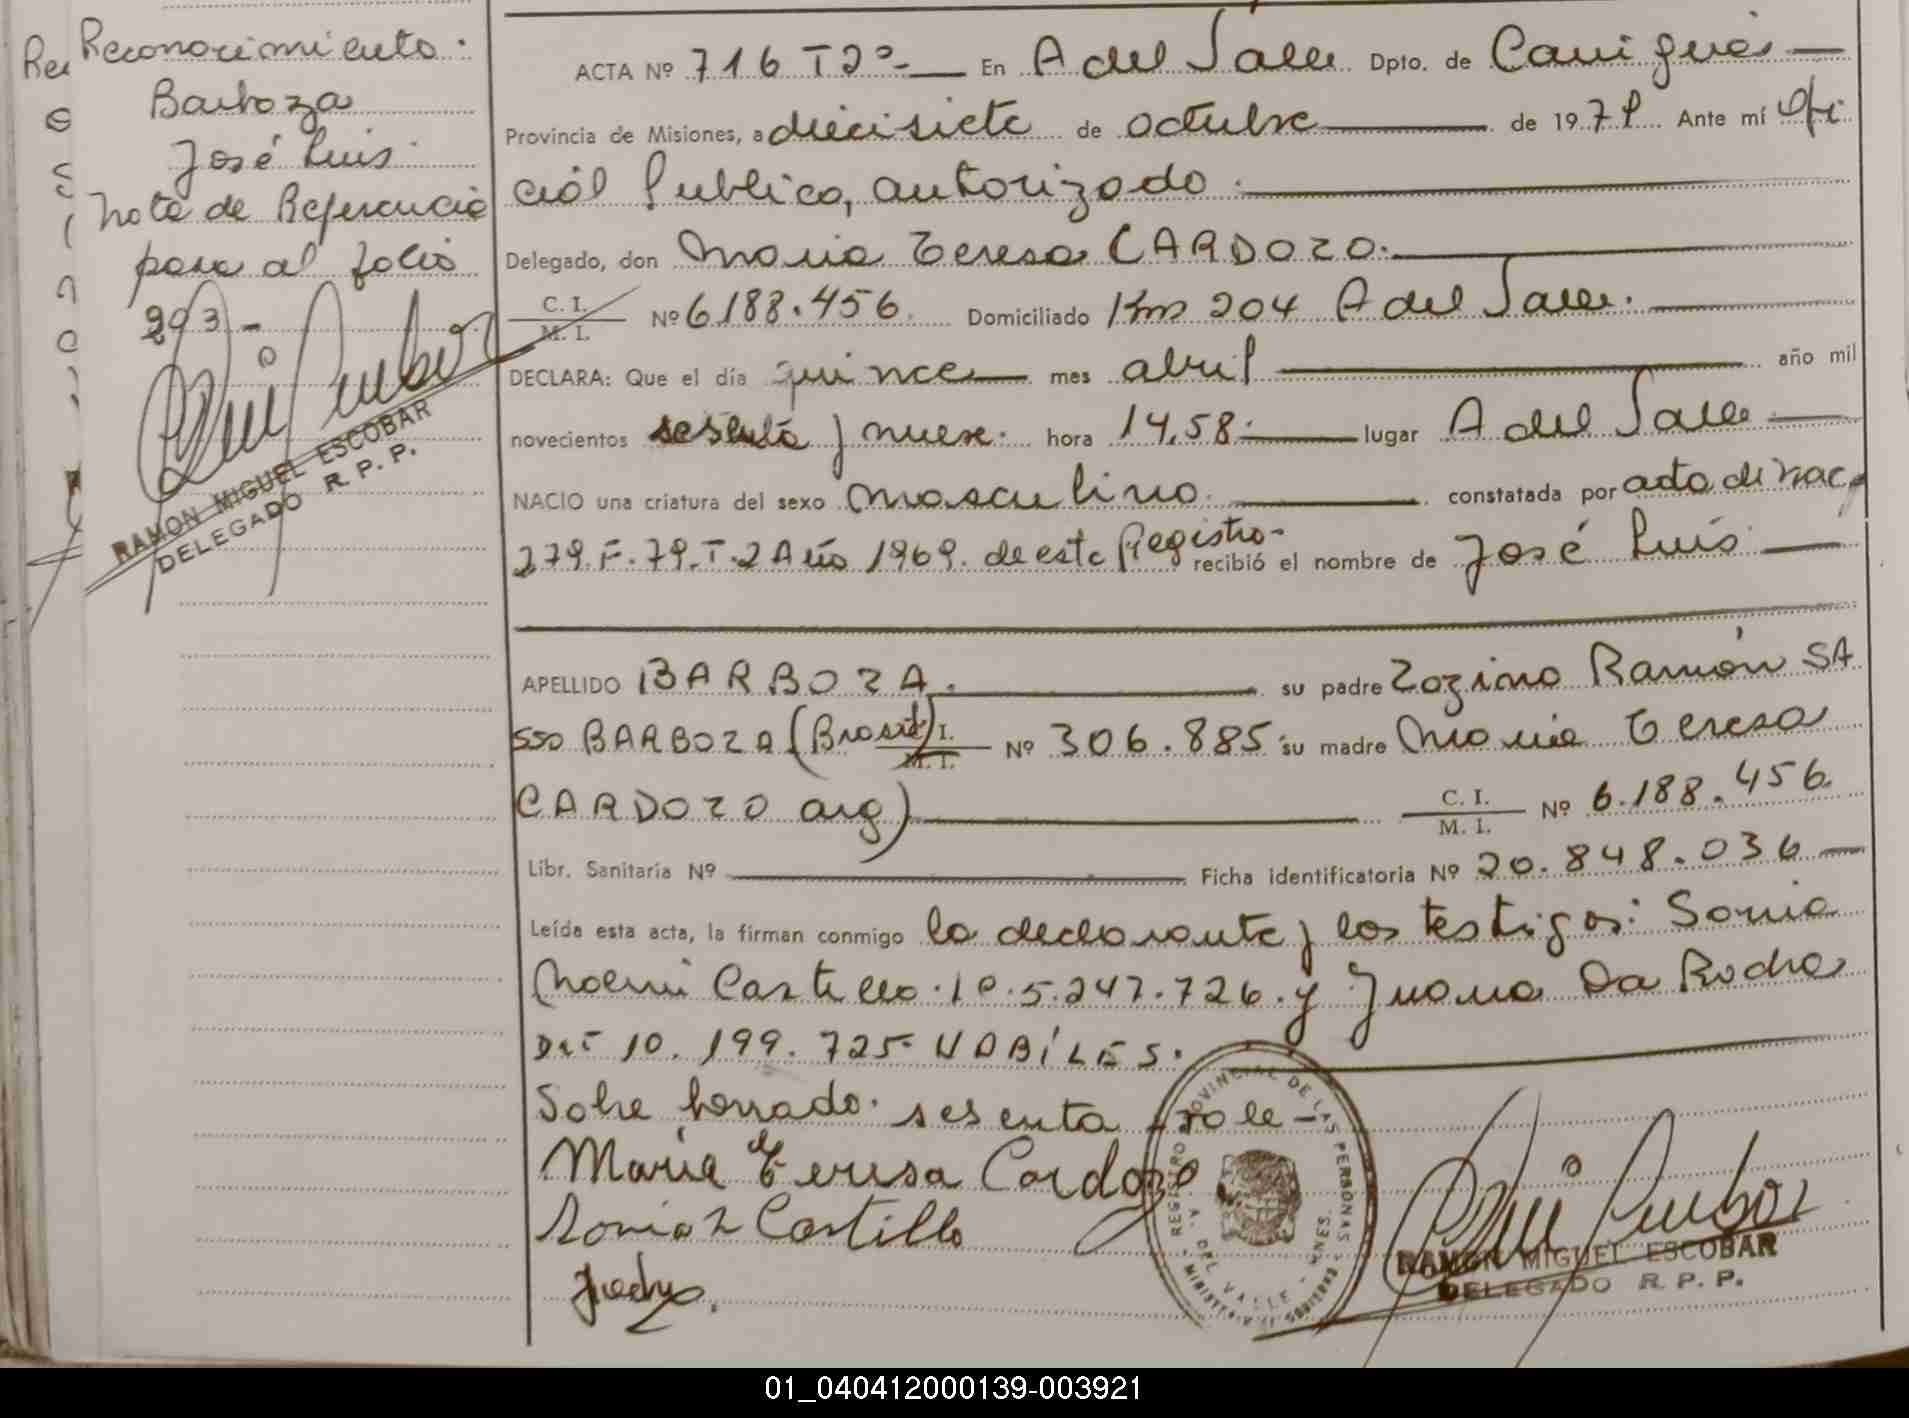 Reconocimiento.
Barboza
José Luis.
Nota de Referencia
para al folio
293-
RAMON MIGUEL ESCOBAR
DELEGADO R. P. P.
ACTA Nº 716 T2º- En A del Valle Dpto. de Cainguás
Provincia de Misiones, a diecisiete de octubre de 197 Ante mí Ofi
cial Publico, autorizado.
Delegado, don Maria Teresa CARDOZO.
C. I. / M. I. Nº 6188.456. Domiciliado Km 204 A del Valle.
DECLARA: Que el día quince mes abril año mil
novecientos sesenta y nueve. hora 14,58. lugar A del Valle
NACIO una criatura del sexo masculino. constatada por acta de nac.
279. F. 79. T. 2 Año 1969. de este Registro- recibió el nombre de José Luís
APELLIDO BARBOZA. su padre Zozimo Ramón SA
sso BARBOZA (Brasil) C. I. / M. I. Nº 306.885 su madre Maria Teresa
CARDOZO arg) C. I. / M. I. Nº 6.188.456.
Libr. Sanitaria Nº Ficha identificatoria Nº 20.848.036
Leída esta acta, la firman conmigo la declarante y los testigos: Sonia
Noemi Castillo. 5.247.726. y Juana Da Rocha
10.199.725 HABÍLES.
Sobre borrado. sesenta vale-
María Teresa Cardozo
Sonia N Castillo
REGISTRO PROVINCIAL DE LAS PERSONAS
A. DEL VALLE - MNES.
RAMON MIGUEL ESCOBAR
DELEGADO R. P. P.
01_040412000139-003921